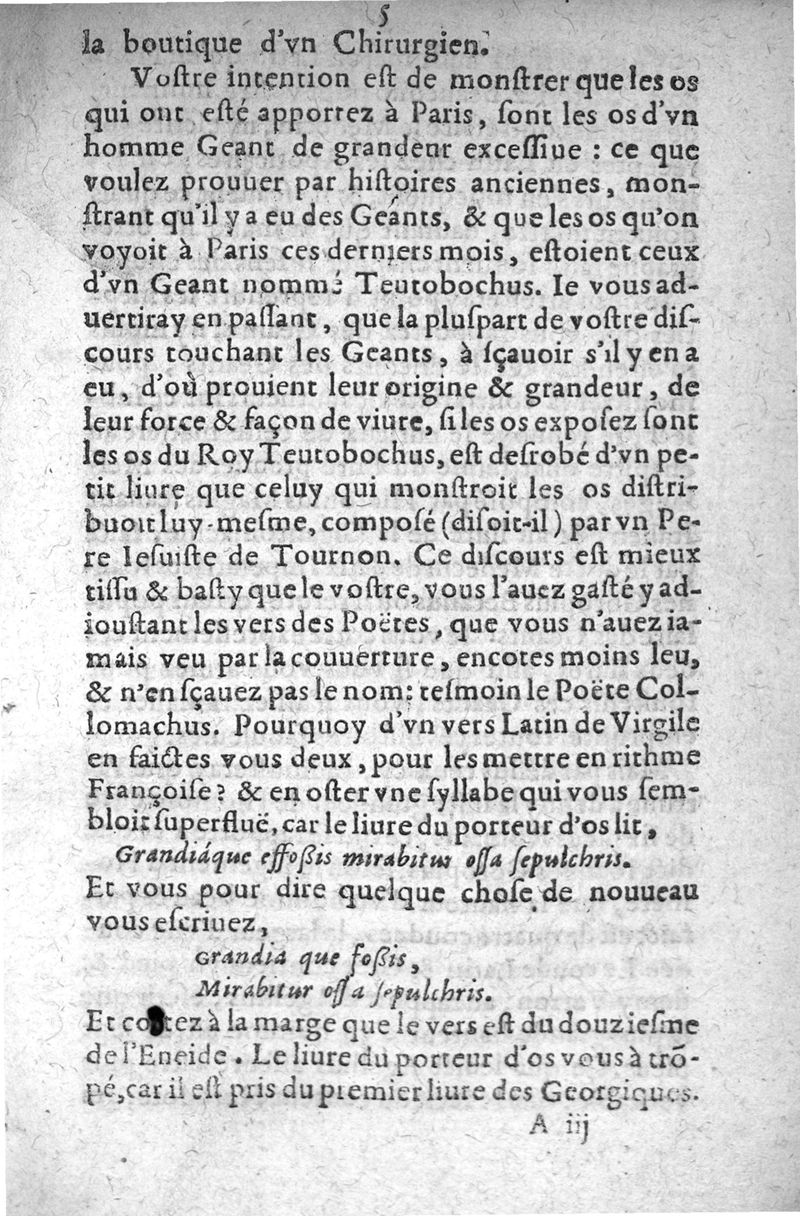 5
la boutique d'vn Chirurgien.
Voſtre intention eſt de monſtrer que les os
qui ont eſté apportez à Paris, ſont les os d'vn
homme Geant de grandeur exceſſiue : ce que
voulez prouuer par hiſtoires anciennes, mon-
ſtrant qu'il y a eu des Geánts, & que les os qu'on
voyoit à Paris ces derniers mois, eſtoient ceux
d'vn Geant nommé Teutobochus. Ie vous ad-
uertiray en paſſant, que la pluſpart de voſtre diſ-
cours touchant les Geants, à ſçauoir s'il y en a
eu, d'où prouient leur origine & grandeur, de
leur force & façon de viure, ſi les os expoſez ſont
les os du Roy Teutobochus, eſt deſrobé d'vn pe-
tit liure que celuy qui monſtroit les os diſtri-
buoit luy-meſme, compoſé (diſoit-il) par vn Pe-
re Ieſuiſte de Tournon. Ce diſcours eſt mieux
tiſſu & baſty que le voſtre, vous l'auez gaſté y ad-
iouſtant les vers des Poëtes, que vous n'auez ia-
mais veu par la couuerture, encores moins leu,
& n'en ſçauez pas le nom: teſmoin le Poëte Col-
lomachus. Pourquoy d'vn vers Latin de Virgile
en faictes vous deux, pour les mettre en rithme
Françoiſe? & en oſter vne ſyllabe qui vous ſem-
bloit ſuperfluë, car le liure du porteur d'os lit,
Grandiáque effoßis mirabitur oſſa ſepulchris.
Et vous pour dire quelque choſe de nouueau
vous eſcriuez,
Grandia que foßis,
Mirabitur oſſa ſepulchris.
Et cottez à la marge que le vers eſt du douzieſme
de l'Eneide. Le liure du porteur d'os vous à trõ-
pé, car il eſt pris du premier liure des Georgiques.
A iij